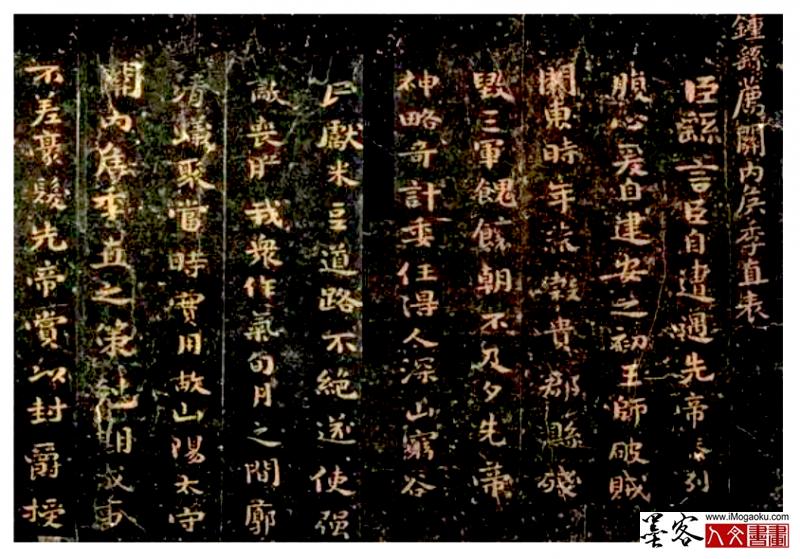 鍾繇薦關内侯季直表
臣繇言臣自遭遇先帝忝列
腹心爰自建安之初王師破賊
関東時年荒穀貴郡縣殘
毀三軍餽饟朝不及夕先帝
神略奇計委任得人深山窮谷
民獻米豆道路不絶遂使强
敵喪膽我衆作氣旬月之間廓
清蟻聚當時實用故山陽太守
關内侯季直之策尅期成事
不差豪髮先帝賞以封爵授
墨客
人文書畫
www.iMogaoku.com